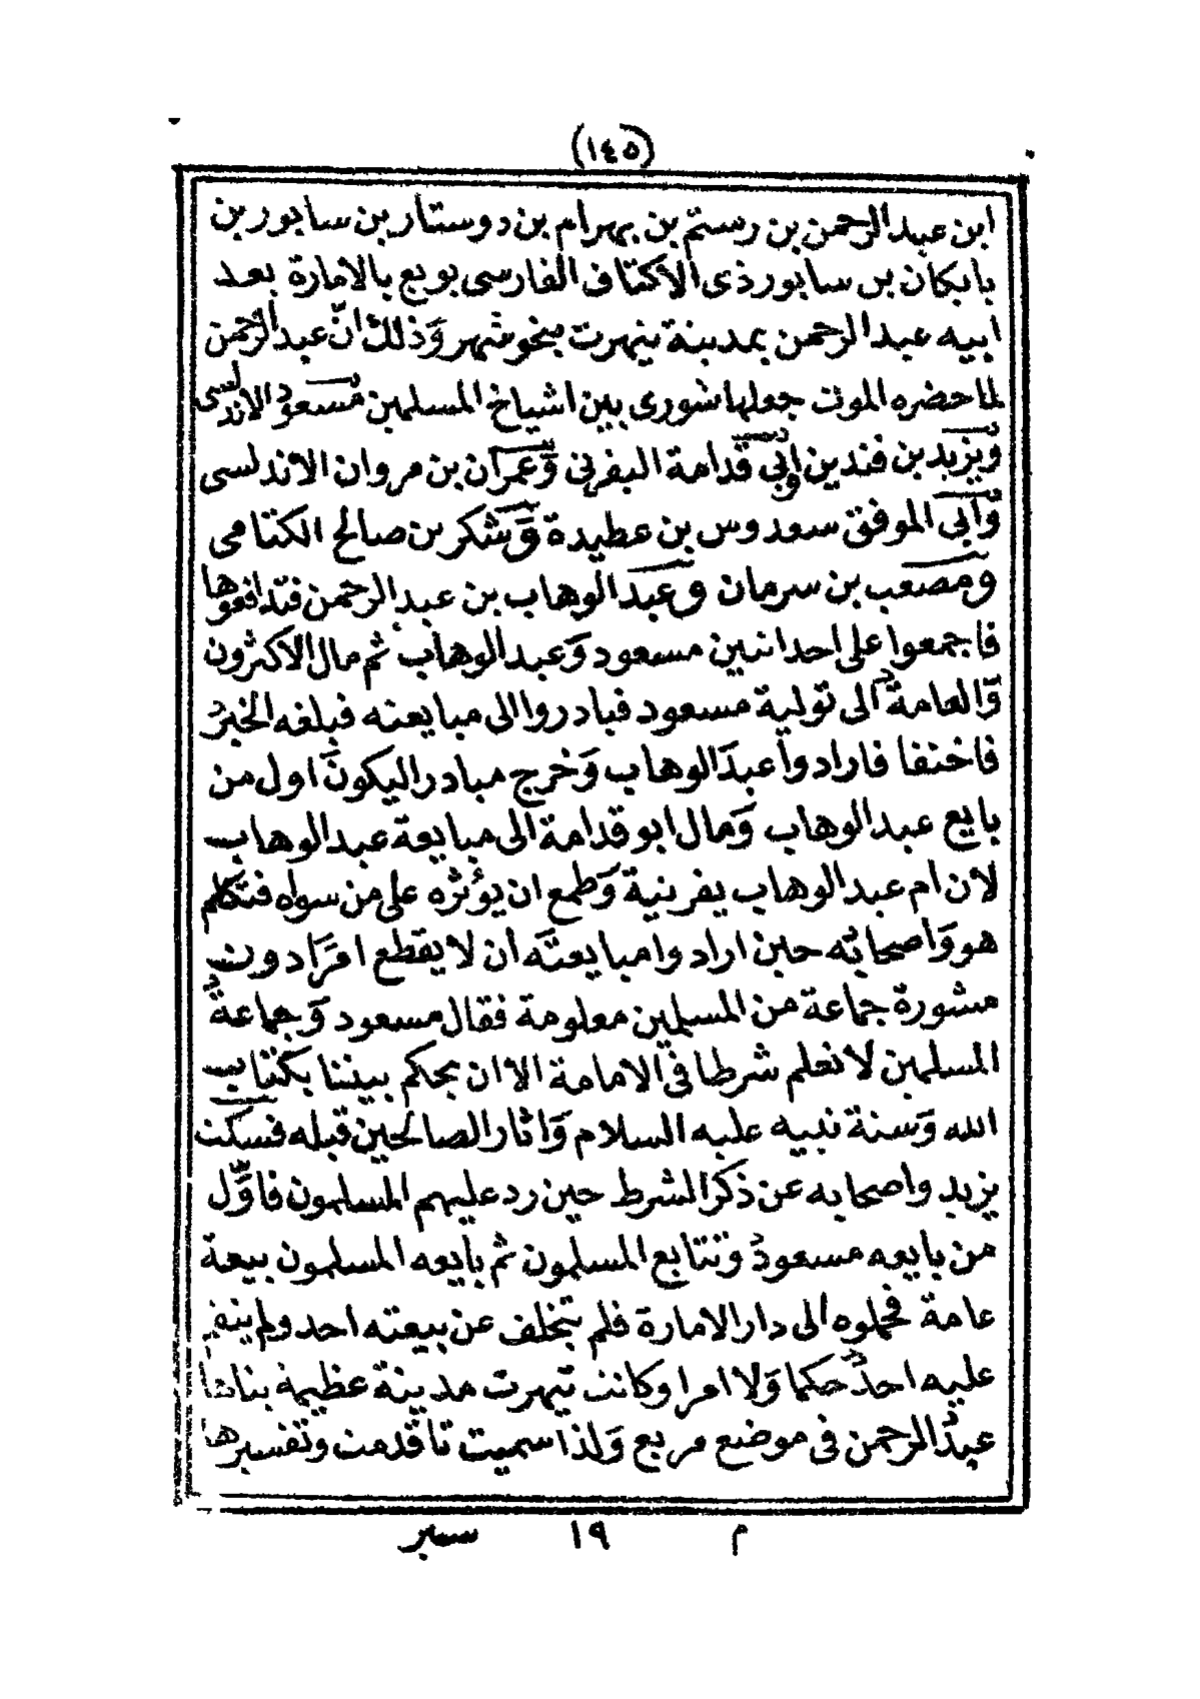 (١٤٥)
ابن عبد الرحمن بن رستم بن بهرام بن دوستار بن سابور بن
بابكان بن سابور ذى الاكتاف الفارسى بويع بالامارة بعد
ابيه عبد الرحمن بمدينة تيهرت بنحو شهر وَذلك انّ عبد الرحمن
لما حضره الموت جعلها شورى بين اشياخ المسلمين مسعود الاندلسى
وَيزيد بن فندين وابى قدامة اليفرنى وَعمران بن مروان الاندلسى
وَابى الموفق سعدوس بن عطيدة وَشكر بن صالح الكتامى
ومصعب بن سرمان وعبد الوهاب بن عبد الرحمن فتدافعوها
فاجمعوا على احد اثنين مسعود وَعبد الوهاب ثم مال الاكثرون
وَالعامة الى تولية مسعود فبادروا الى مبايعته فبلغه الخبرُ
فاختفا فارادوا عبدَ الوهاب وَخرج مبادرا ليكونَ اول من
بايع عبد الوهاب وَمال ابو قدامة الى مبايعة عبد الوهاب
لان ام عبد الوهاب يفرنية وَطمع ان يؤثره على من سواه فتكلم
هو وَاصحابه حين ارادوا مبايعتَه أن لا يقطع امرًا دون
مشورة جماعة من المسلمين معلومة فقال مسعود وَجماعةُ
المسلمين لا نعلم شرطا فى الامامة الا ان يحكم بيننا بكتاب
الله وَسنة نبيه عليه السلام وَاثار الصالحين قبله فسكت
يزيد واصحابه عن ذكر الشرط حين رد عليهم المسلمون فاوّل
من بايعه مسعودُ وَتتابع المسلمون ثم بايعه المسلمون بيعة
عامة فحملوه الى دار الامارة فلم يتخلف عن بيعته احد ولم ينقم
عليه احدُ حكما وَلا امرا وكانت تيهرت مدينة عظيمة بناها
عبدُ الرحمن فى موضع مربع وَلذا سميت تاقدمت وتفسيرها
م ١٩ سير